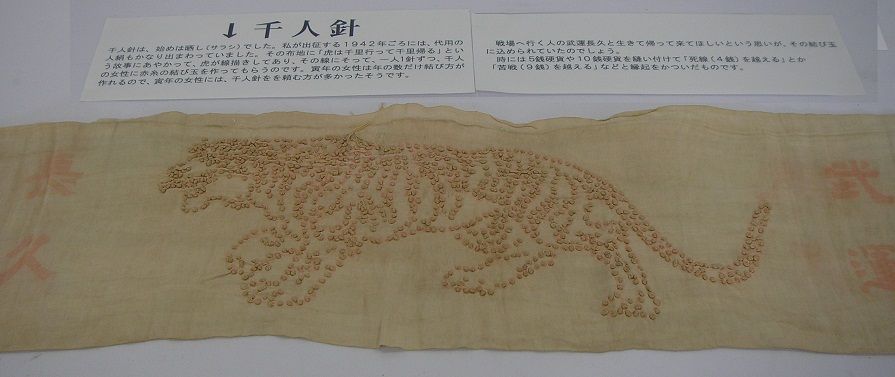 ↓千人針
千人針は、始めは晒し(サラシ)でした。私が出征する1942年ごろには、代用の
人絹もかなり出まわっていました。その布地に「虎は千里行って千里帰る」とい
う故事にあやかって、虎が線描きしてあり、その線にそって、一人1針ずつ、千人
の女性に赤糸の結び玉を作ってもらうのです。寅年の女性は年の数だけ結び方が
作れるので、寅年の女性には、千人針をを頼む方が多かったそうです。
戦場へ行く人の武運長久と生きて帰って来てほしいという思いが、その結び玉
に込められていたのでしょう。
時には5銭硬貨や10銭硬貨を縫い付けて「死線(4銭)を越える」とか
「苦戦(9銭)を越える」などと縁起をかついだものです。
武運
長久